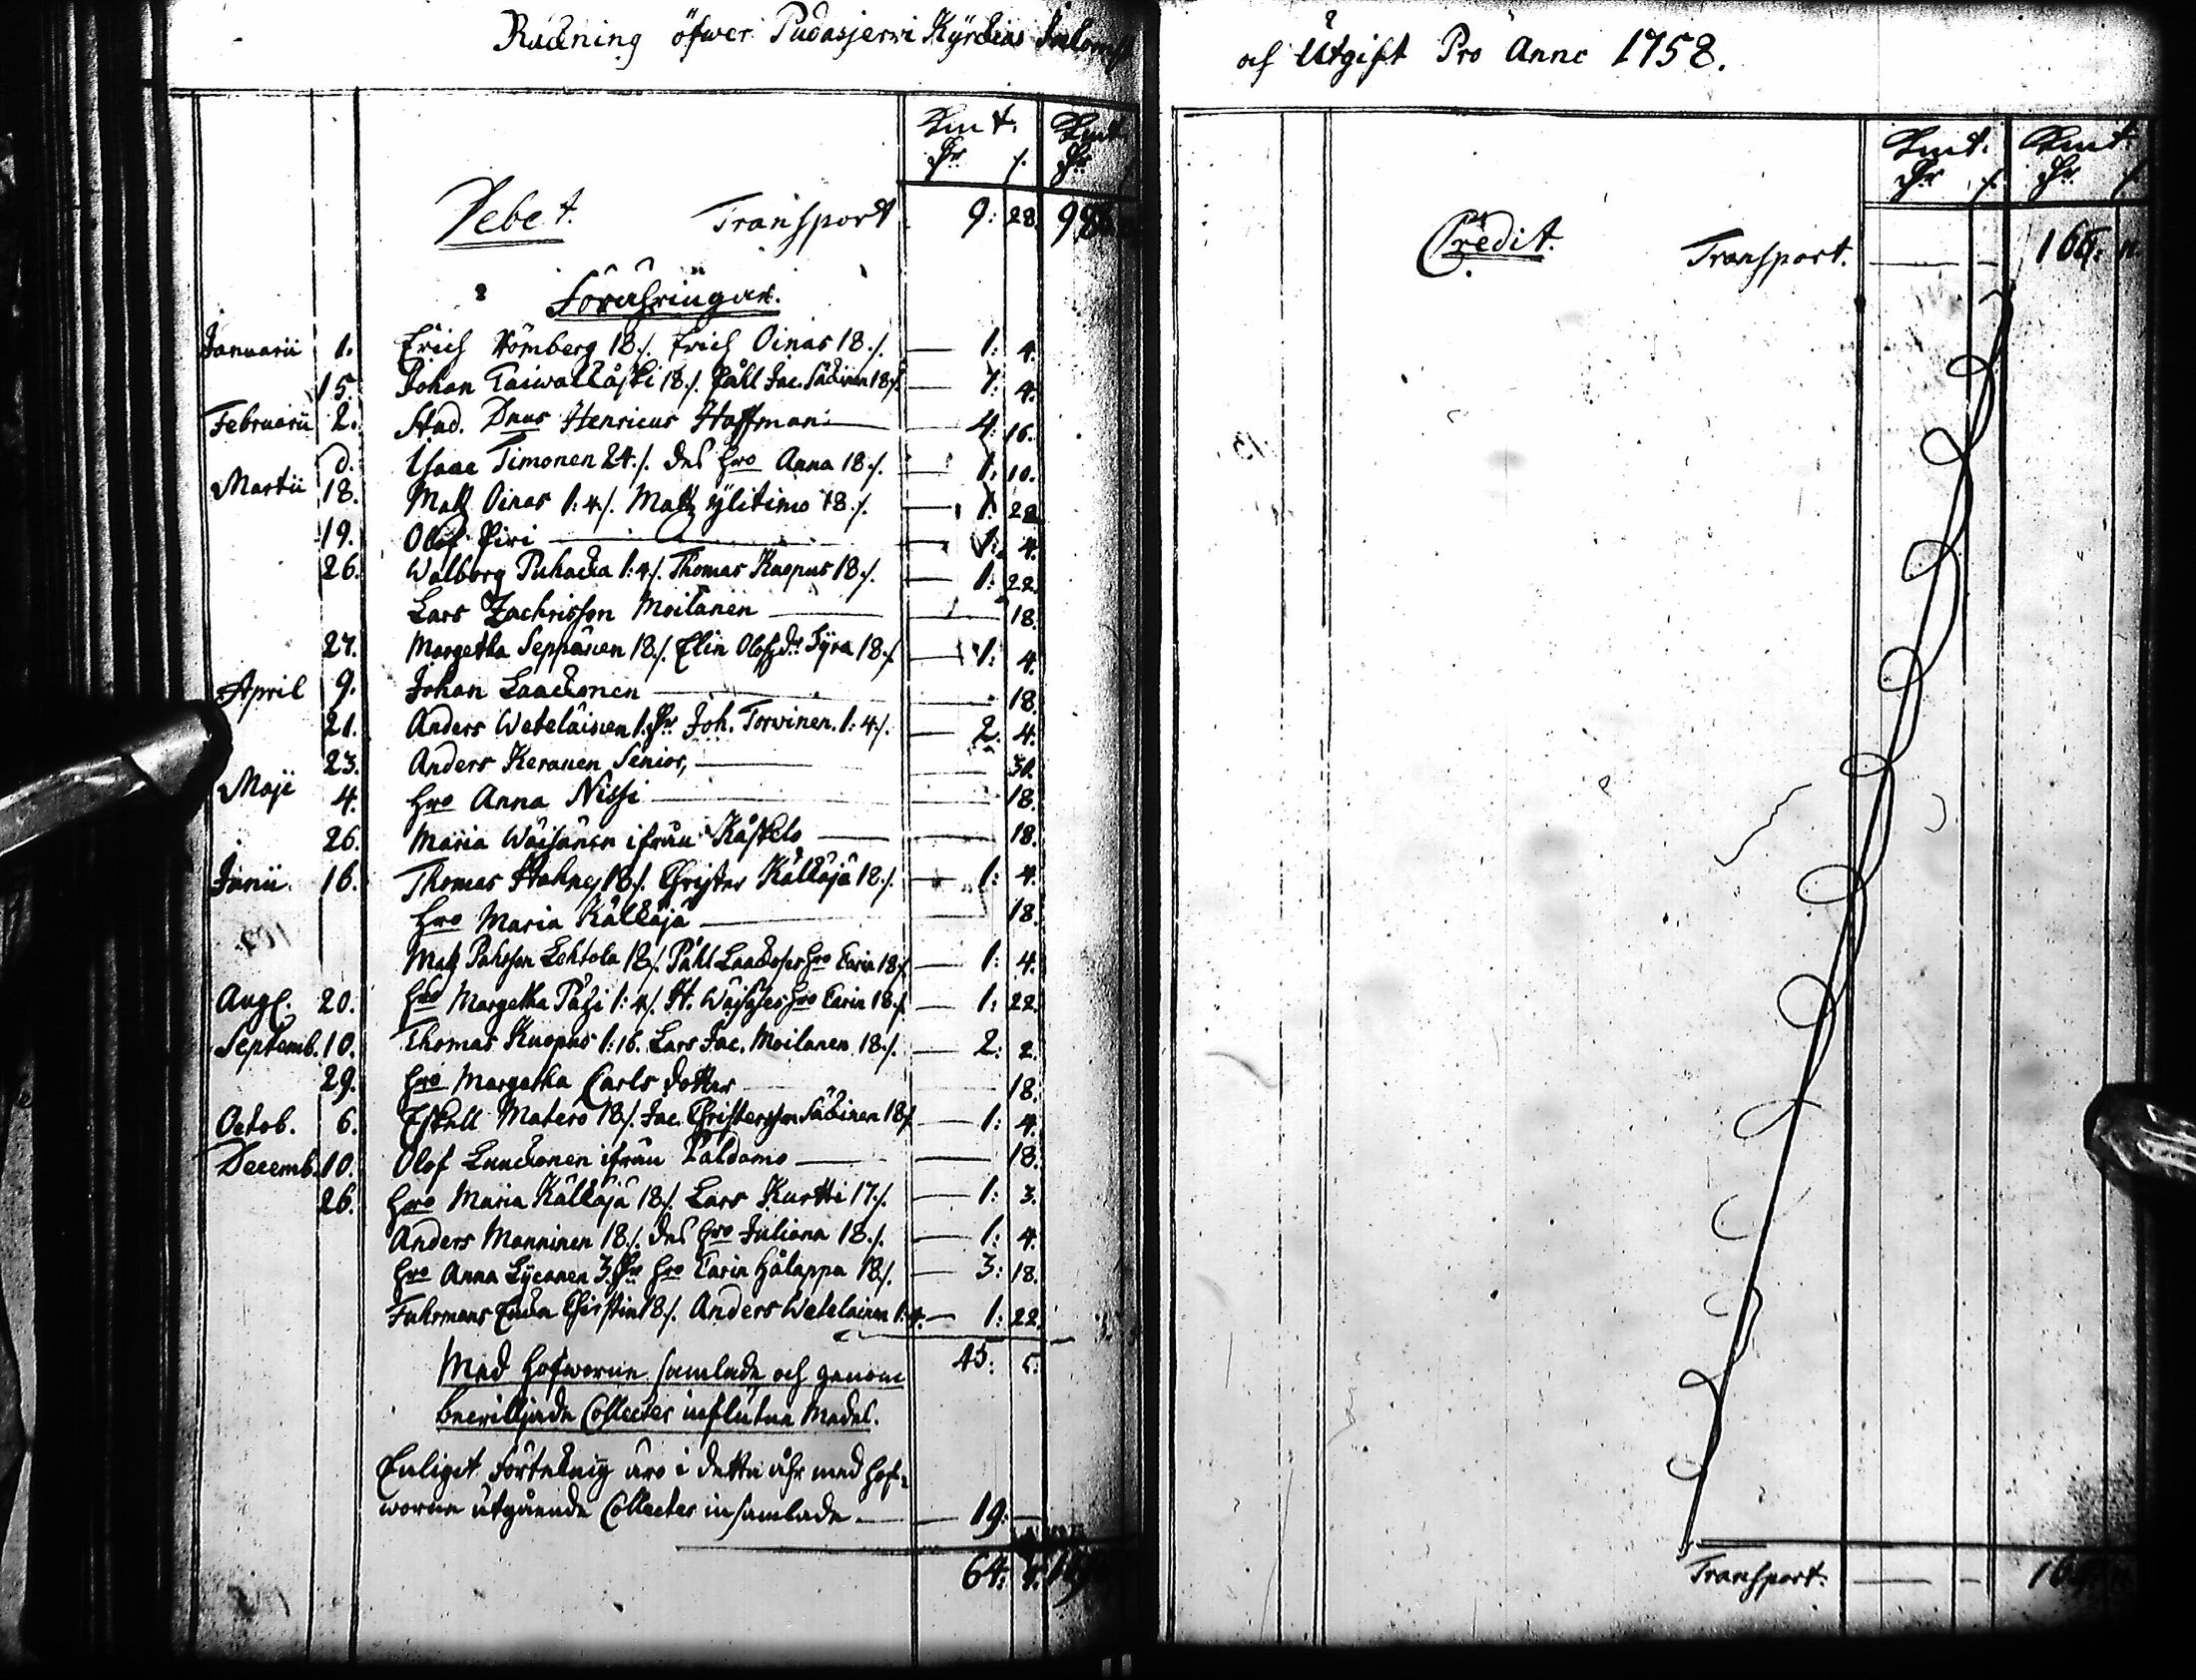 Räckning öfwer Pudasjerwi Kyrckias Inkomst
Kmt. Kmt.
Dr. /. Dr.
Debet. Transport 9: 28. 98
Förähringar.
Januarii 1. Erich Römberg 18./. Erich Oinas 18./. — 1: 4.
15. Johan Taiwalkåski 18./. Påhl Jac. Säkinen 18./. — 1: 4.
Februarii 2. Stud. Dnus Henricus Hoffman — 4: 16.
d. Isaac Timonen 24./. des hro Anna 18./. — 1: 10.
Martii 18. Matz Oinas 1:4/. Matz ylitimo 18./. — 1: 22
19. Olof Piri — 1: 4.
26. Walborg Puhacka 1:4/. Thomas Kuopus 18./. — 1: 22.
Lars Zachrisson Moilanen — 18.
27. Margetha Seppänen 18./. Elin Olofzdr Syra 18./. — 1: 4.
April 9. Johan Laackonen — 18.
21. Anders Weteläinen 1.Dr Joh. Torwinen. 1:4/. — 2. 4.
23. Anders Keranen Senior, — 30.
Maji 4. hro Anna Nissi — 18.
26. Maria Wäisänen ifrån Kåskelo — — 18.
Junii. 16. Thomas Stahney 18/. Christer Källäjä 18./. — 1: 4.
hro Maria Källäjä — 18.
Matz Påhsson Lehtola 18/. Påhl Laackoses hro Carin 18/. — 1: 4.
Aug. 20. hro Margetha Pätzi 1:4/. H. Wäisäses hro Carin 18./. — 1: 22.
Septemb. 10. Thomas Kuopus 1:16. Lars Jac. Moilanen 18./. — 2: 2.
29. hro Margetha Carls dotter — 18.
Octob. 6. Eskell Matero 18/. Jac. Christersson Säkinen 18/. — 1: 4.
Decemb. 10. Olof Laackonen ifrån Paldamo — — 18.
26. hro Maria Källäjä 18/. Lars Kurtti 17./. — 1: 3.
Anders Manninen 18/. des hro Juliana 18./. — 1: 4.
hro Anna Lycanen 3.Dr hro Carin Hålappa 18/. — 3: 18.
Fuhrmans Enka Christin 18./. Anders Weteläinen 1:4. — 1: 22.
45: 5.
Med hofworne samlade och genom
bewilljade Collecter influtne Medel.
Enligit förtekning äro i detta åhr med hof-
worne utgående Collecter insamlade — — 19: —
64:
och Utgift Pro Anno 1758.
Kmt. Kmt.
Dr /. Dr. /.
Credit. Transport. — —
Transport. — —